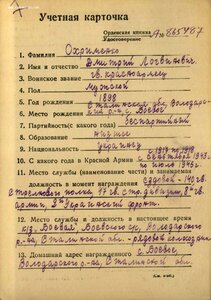 Учетная карточка
Орденская книжка
Удостоверение № 865487
1. Фамилия Охрименко
2. Имя и отчество Дмитрий Логвинович
3. Воинское звание гв. красноармеец
4. Пол Мужской
5. Год рождения 1898
6. Место рождения Сталинская обл, Володарский
р-н, с. Боевое
7. Партийность (с какого года) беспартийный
8. Образование низшее
9. Национальность украинец
10. С какого года в Красной Армии с 1917 по 1918
с сентября 1943
по июль 1945 г.
11. Место службы (наименование части) и занимаемая
должность в момент награждения 140 гв.
стрелкового полка, 47 гв. стр. дивизии, 8й гв.
армии, 3й Украинский фронт.
12. Место службы и должность в настоящее время
к/з, Боевое, Володарского
р-на, Сталинской обл. - рядовой колхозник
13. Домашний адрес награжденного с. Боевое
Володарского р-на, Сталинской обл